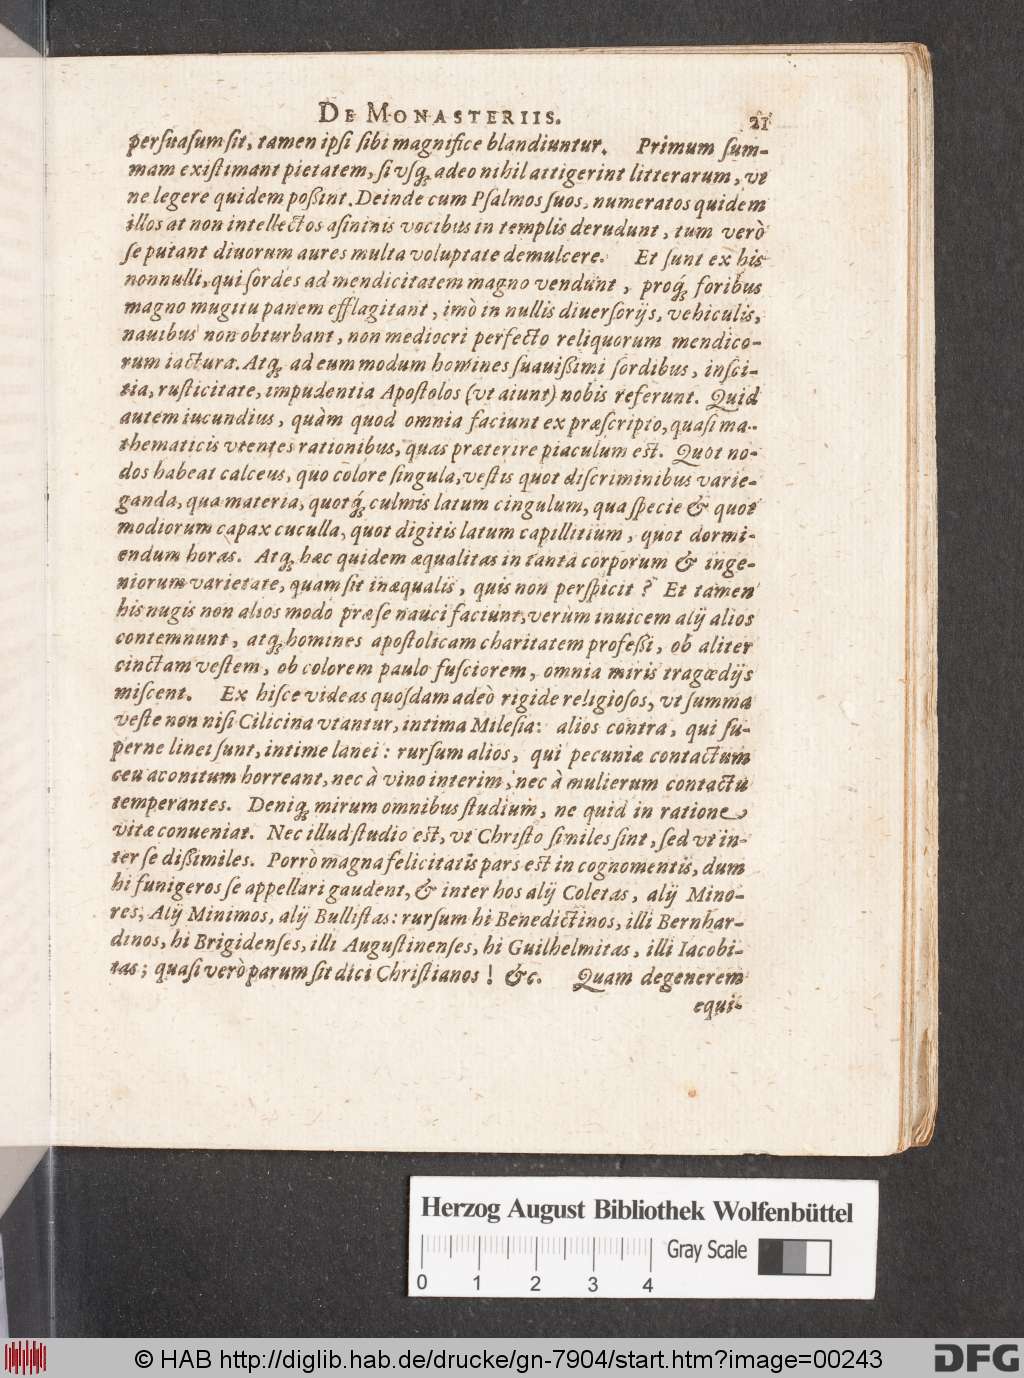 DE MONASTERIIS. 21
persuasum sit, tamen ipsi sibi magnifice blandiuntur. Primum sum-
mam existimant pietatem, si vsq; adeo nihil attigerint litterarum, vt
ne legere quidem poßint. Deinde cum Psalmos suos, numeratos quidem
illos at non intellectos asininis vocibus in templis derudunt, tum verò
se putant diuorum aures multa voluptate demulcere. Et sunt ex his
nonnulli, qui sordes ad mendicitatem magno vendunt, proq́; foribus
magno mugitu panem efflagitant, imò in nullis diuersorijs, vehiculis,
nauibus non obturbant, non mediocri perfecto reliquorum mendico-
rum iacturæ. Atq; ad eum modum homines suauißimi sordibus, insci-
tia, rusticitate, impudentia Apostolos (vt aiunt) nobis referunt. Quid
autem iucundius, quàm quod omnia faciunt ex præscripto, quasi ma-
thematicis vtentes rationibus, quas præterire piaculum est. Quot no-
dos habeat calceus, quo colore singula, vestis quot discriminibus varie-
ganda, qua materia, quotq́; culmis latum cingulum, qua specie & quot
modiorum capax cuculla, quot digitis latum capillitium, quot dormi-
endum horas. Atq; hæc quidem æqualitas in tanta corporum & inge-
niorum varietate, quam sit inæqualis, quis non perspicit? Et tamen
his nugis non alios modo præ se nauci faciunt, verùm inuicem alij alios
contemnunt, atq; homines apostolicam charitatem professi, ob aliter
cinctam vestem, ob colorem paulo fusciorem, omnia miris tragœdijs
miscent. Ex hisce videas quosdam adeò rigide religiosos, vt summa
veste non nisi Cilicina vtantur, intima Milesia: alios contra, qui su-
perne linei sunt, intime lanei: rursum alios, qui pecuniæ contactum
ceu aconitum horreant, nec à vino interim, nec à mulierum contactu
temperantes. Deniq; mirum omnibus studium, ne quid in ratione
vitæ conueniat. Nec illud studio est, vt Christo similes sint, sed vt in-
ter se dißimiles. Porrò magna felicitatis pars est in cognomentis, dum
hi funigeros se appellari gaudent, & inter hos alij Coletas, alij Mino-
res, Alij Minimos, alij Bullistas: rursum hi Benedictinos, illi Bernhar-
dinos, hi Brigidenses, illi Augustinenses, hi Guilhelmitas, illi Iacobi-
tas; quasi verò parum sit dici Christianos! &c. Quam degenerem
equi-
Herzog August Bibliothek Wolfenbüttel
Gray Scale
0 1 2 3 4
© HAB http://diglib.hab.de/drucke/gn-7904/start.htm?image=00243
DFG